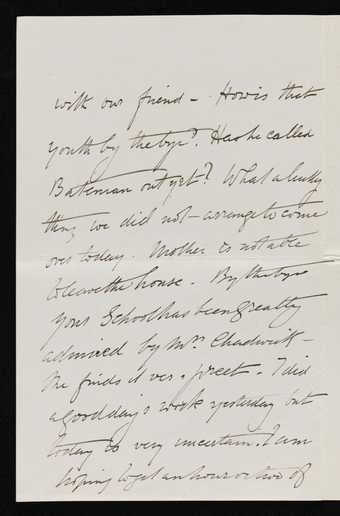 with our friend - How is that
youth by the bye? Has he called
Bateman out yet? What a lucky
thing we did not - arrange to come
over today. Mother is not able
to leave the house. By the bye
your School has been greatly
admired by Mr. Chadwick -
He finds it ver. . I did
a good day's work yesterday but
today is very uncertain. I am
hoping to get an hour or two of